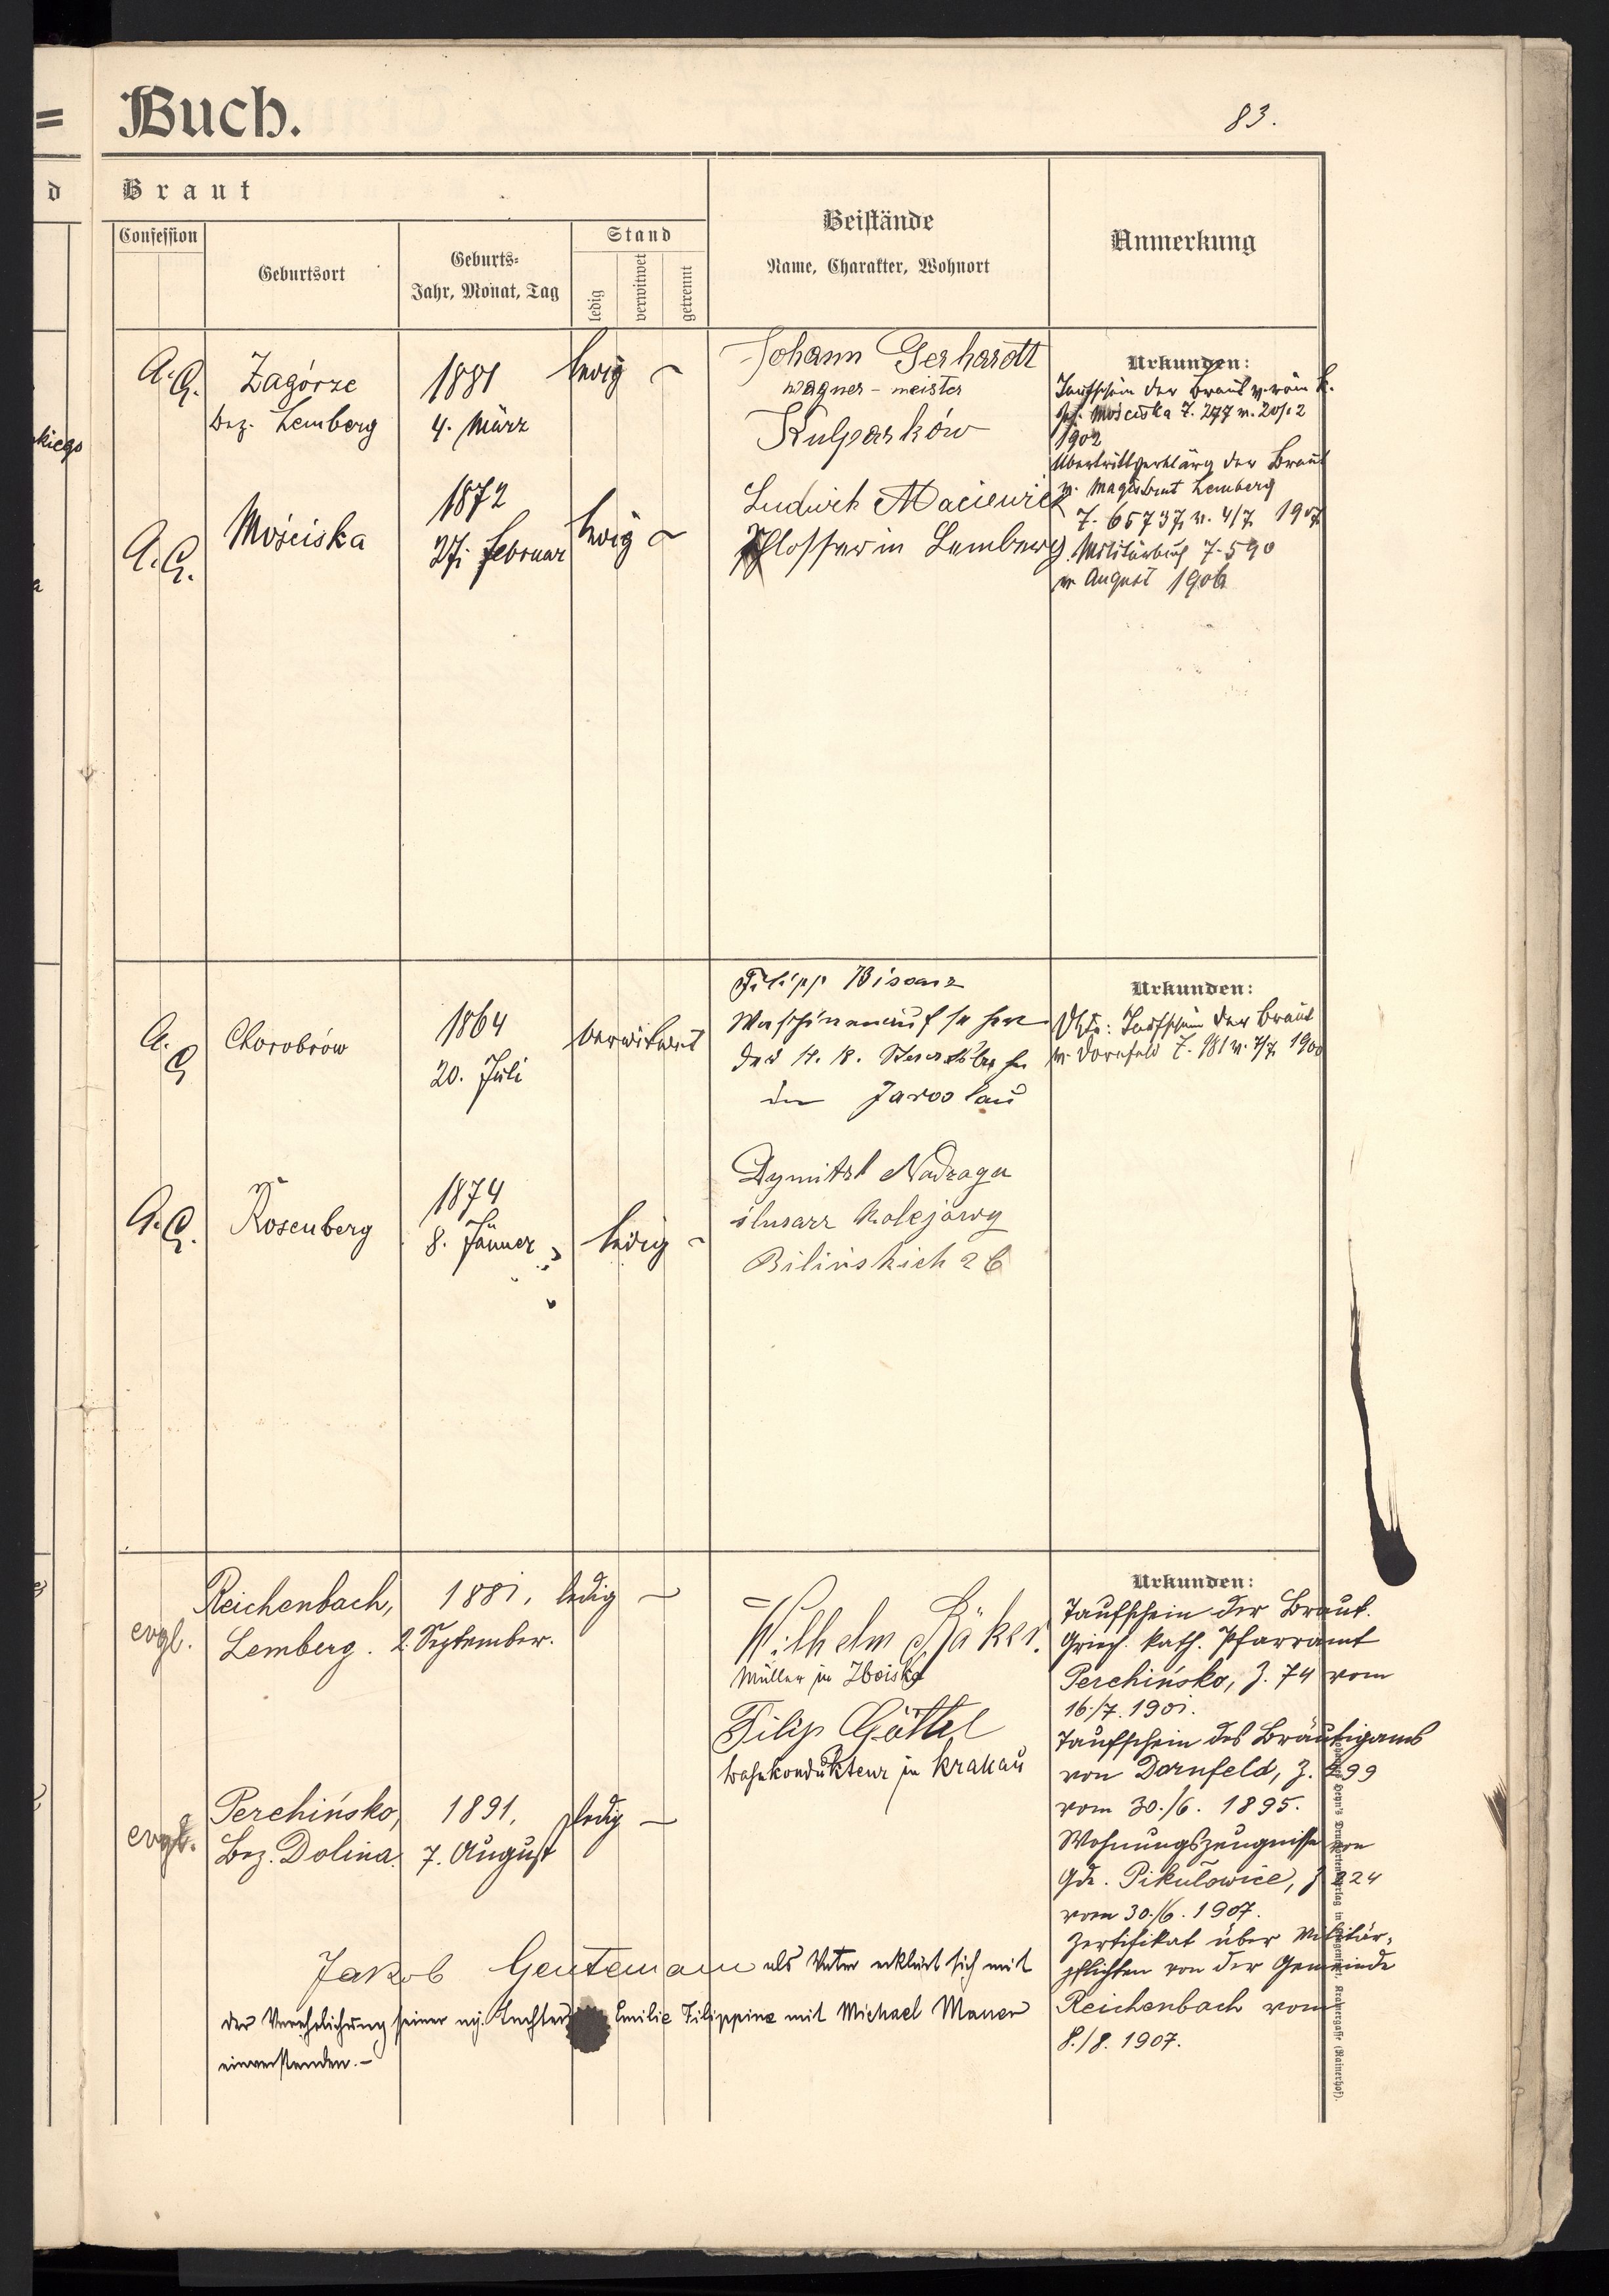 = Buch.
83.
d Braut
Confession
Geburtsort
Geburts-
Jahr, Monat, Tag
Stand
ledig
verwitwet
getrennt
Beistände
Name, Charakter, Wohnort
Anmerkung
A.C.
Zagórze
Bez. Lemberg
1881
4. März
ledig
Johann Gerhardt
Wagner-meister
Kulparków
Urkunden:
Taufschein der Braut v. röm. k.
Pf. Mościska Z. 277 v. 20/12
1902
Übertrittserklärg der Braut
v. Magistrat Lemberg
Z. 65737 v. 4/7 1907
Militärbuch Z. 590
v. August 1906
kiego
A.C.
Mościska
1872
27. Februar
ledig
Ludwik Maciewicz
Schlosser in Lemberg
A.C.
Chorobrów
1864
20. Juli
verwitwet
Filipp Bisanz
Maschinenaufseher
der K. K. Staatsbahn
in Jaroslau
Urkunden:
Taufschein der Braut
v. Dornfeld Z. 181 v. 7/7 1900
A.C.
Rosenberg
1874
8. Jänner
ledig
Dymitri Nadraga
ślusarz kolejowy
Bilińskich 26
evgl.
Reichenbach,
Lemberg.
1881.
2. September.
ledig
Wilhelm Bäker.
Müller in Zboiska
Filip Göttel
Bahnkondukteur in Krakau
Urkunden:
Taufschein der Braut.
Griech. kath. Pfarramt
Perehińsko, Z. 74 vom
16./7. 1901.
Taufschein des Bräutigams
von Dornfeld, Z. 299
vom 30./6. 1895.
Wohnungszeugnisse von
Gde. Pikułowice, Z 224
vom 30./6. 1907.
Zertifikat über Militär-
pflichten von der Gemeinde
Reichenbach vom
8./8. 1907.
evgl.
Perehińsko,
Bez. Dolina.
1891.
7. August
ledig
Jakob Gentemann als Vater erklärt sich mit
der Verehelichung seiner mj. Tochter Emilie Filippine mit Michael Mauer
einverstanden.-
Heyn's Druck Verlag in Klagenfurt, Kramergasse (Rainerhof).